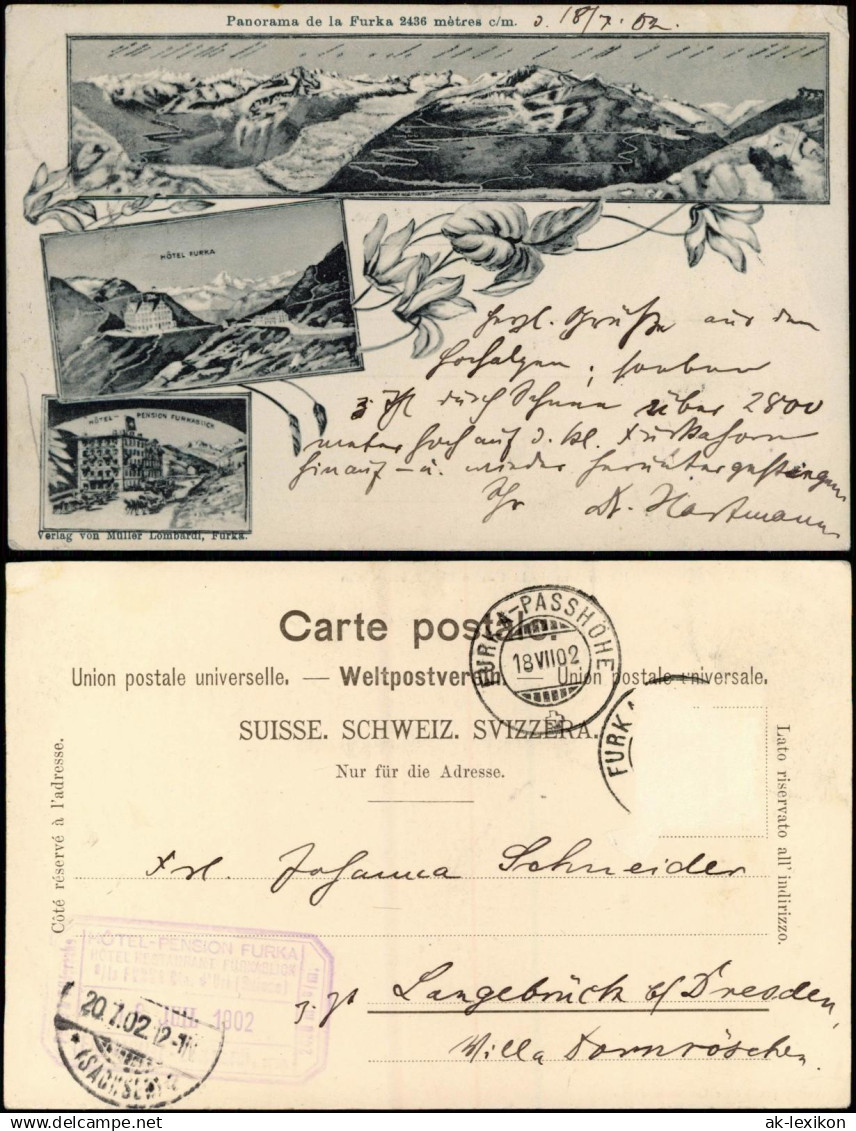 Panorama de la Furka 2436 mètres c/m. d. 18/7. 02.
HÔTEL FURKA
HÔTEL - PENSION FURKABLICK
Herzl. Grüße aus den
Hochalpen, soeben
durch Schnee über 2800
meter hoch auf d. kl. Furkahorn
hinauf - u. wieder heruntergestiegen
Ihr Dr. Hartmann
Verlag von Müller Lombardi, Furka.
Carte postale.
FURKA-PASSHÖHE
18 VII 02
Union postale universelle. — Weltpostverein — Union postale universale.
SUISSE. SCHWEIZ. SVIZZERA.
FURKA
Nur für die Adresse.
Côté réservé à l'adresse.
Lato riservato all' indirizzo.
Frl. Johanna Schneider
HÔTEL-PENSION FURKA
HÔTEL RESTAURANT FURKABLICK
JUIL 1902
z. Zt. Langebrück b/ Dresden,
Villa Dornröschen.
20.7.02.12-1N
(SACHSEN)
ak-lexikon